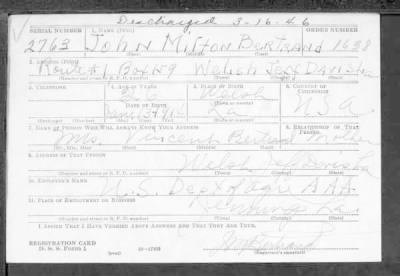 Discharged 3-16-46
SERIAL NUMBER 1. NAME (Print) ORDER NUMBER
2763 John Milton Bertrand 1628
2. ADDRESS (Print)
Route #1 Box 159 Welsh Jeff Davis
3. TELEPHONE 4. AGE IN YEARS 5. PLACE OF BIRTH 6. COUNTRY OF CITIZENSHIP
26 Welsh
DATE OF BIRTH
La U.S.A.
7. NAME OF PERSON WHO WILL ALWAYS KNOW YOUR ADDRESS 8. RELATIONSHIP OF THAT PERSON
Mrs. Vincent Bertrand Mother
9. ADDRESS OF THAT PERSON
Welsh Jeff Davis La
10. EMPLOYER'S NAME
U.S. Dept of Agri AAA
11. PLACE OF EMPLOYMENT OR BUSINESS
Jennings La.
I AFFIRM THAT I HAVE VERIFIED ABOVE ANSWERS AND THAT THEY ARE TRUE.
REGISTRATION CARD
D. S. S. FORM 1 (over) Bertrand
(Registrant's signature)